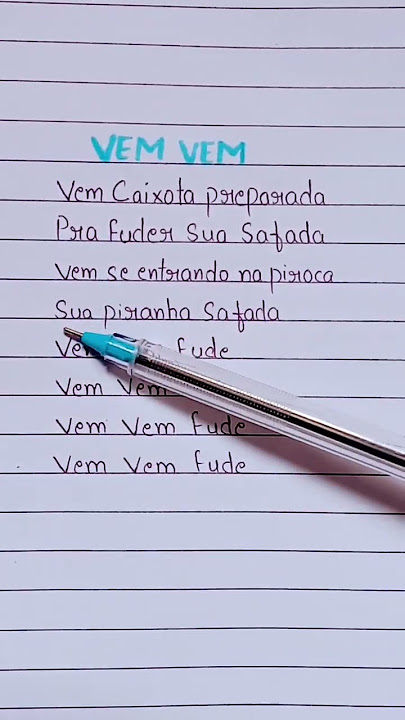 VEM VEM
Vem Caixota preparada
Pra fuder Sua Safada
Vem se entrando na piroca
Sua piranha Safada
fude
Vem Vem
Vem Vem fude
Vem Vem fude